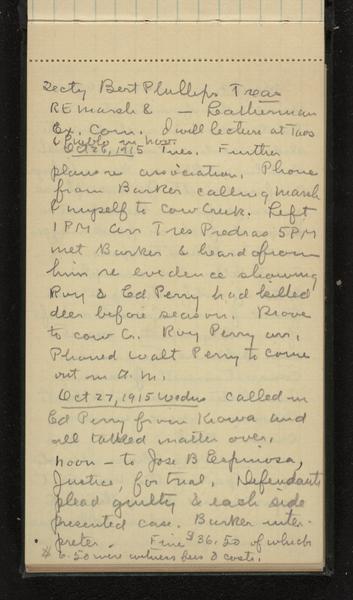 Secty Bert Phillips Treas
RE Marsh & — Leatherman
Ex. Com. I will lecture at Taos
Pueblo in Nov.
Oct 26, 1915 Tues. Further
plans re association. Phone
from Barker calling Marsh
& myself to Cow Creek. Left
1 PM arr Tres Piedras 5 PM
met Barker & heard from
him re evidence showing
Roy & Ed Perry had killed
deer before season. Drove
to cow Cr. Roy Perry arr.
Phoned Walt Perry to come
out in A.M.
Oct 27, 1915 Wednes called in
Ed Perry from Kiowa and
all talked matter over,
noon — to Jose B Espinosa,
Justice, for trial. Defendants
plead guilty & each side
presented case. Barker inter-
preter. Fine $36.50 of which
$6.50 were witness fees & costs.